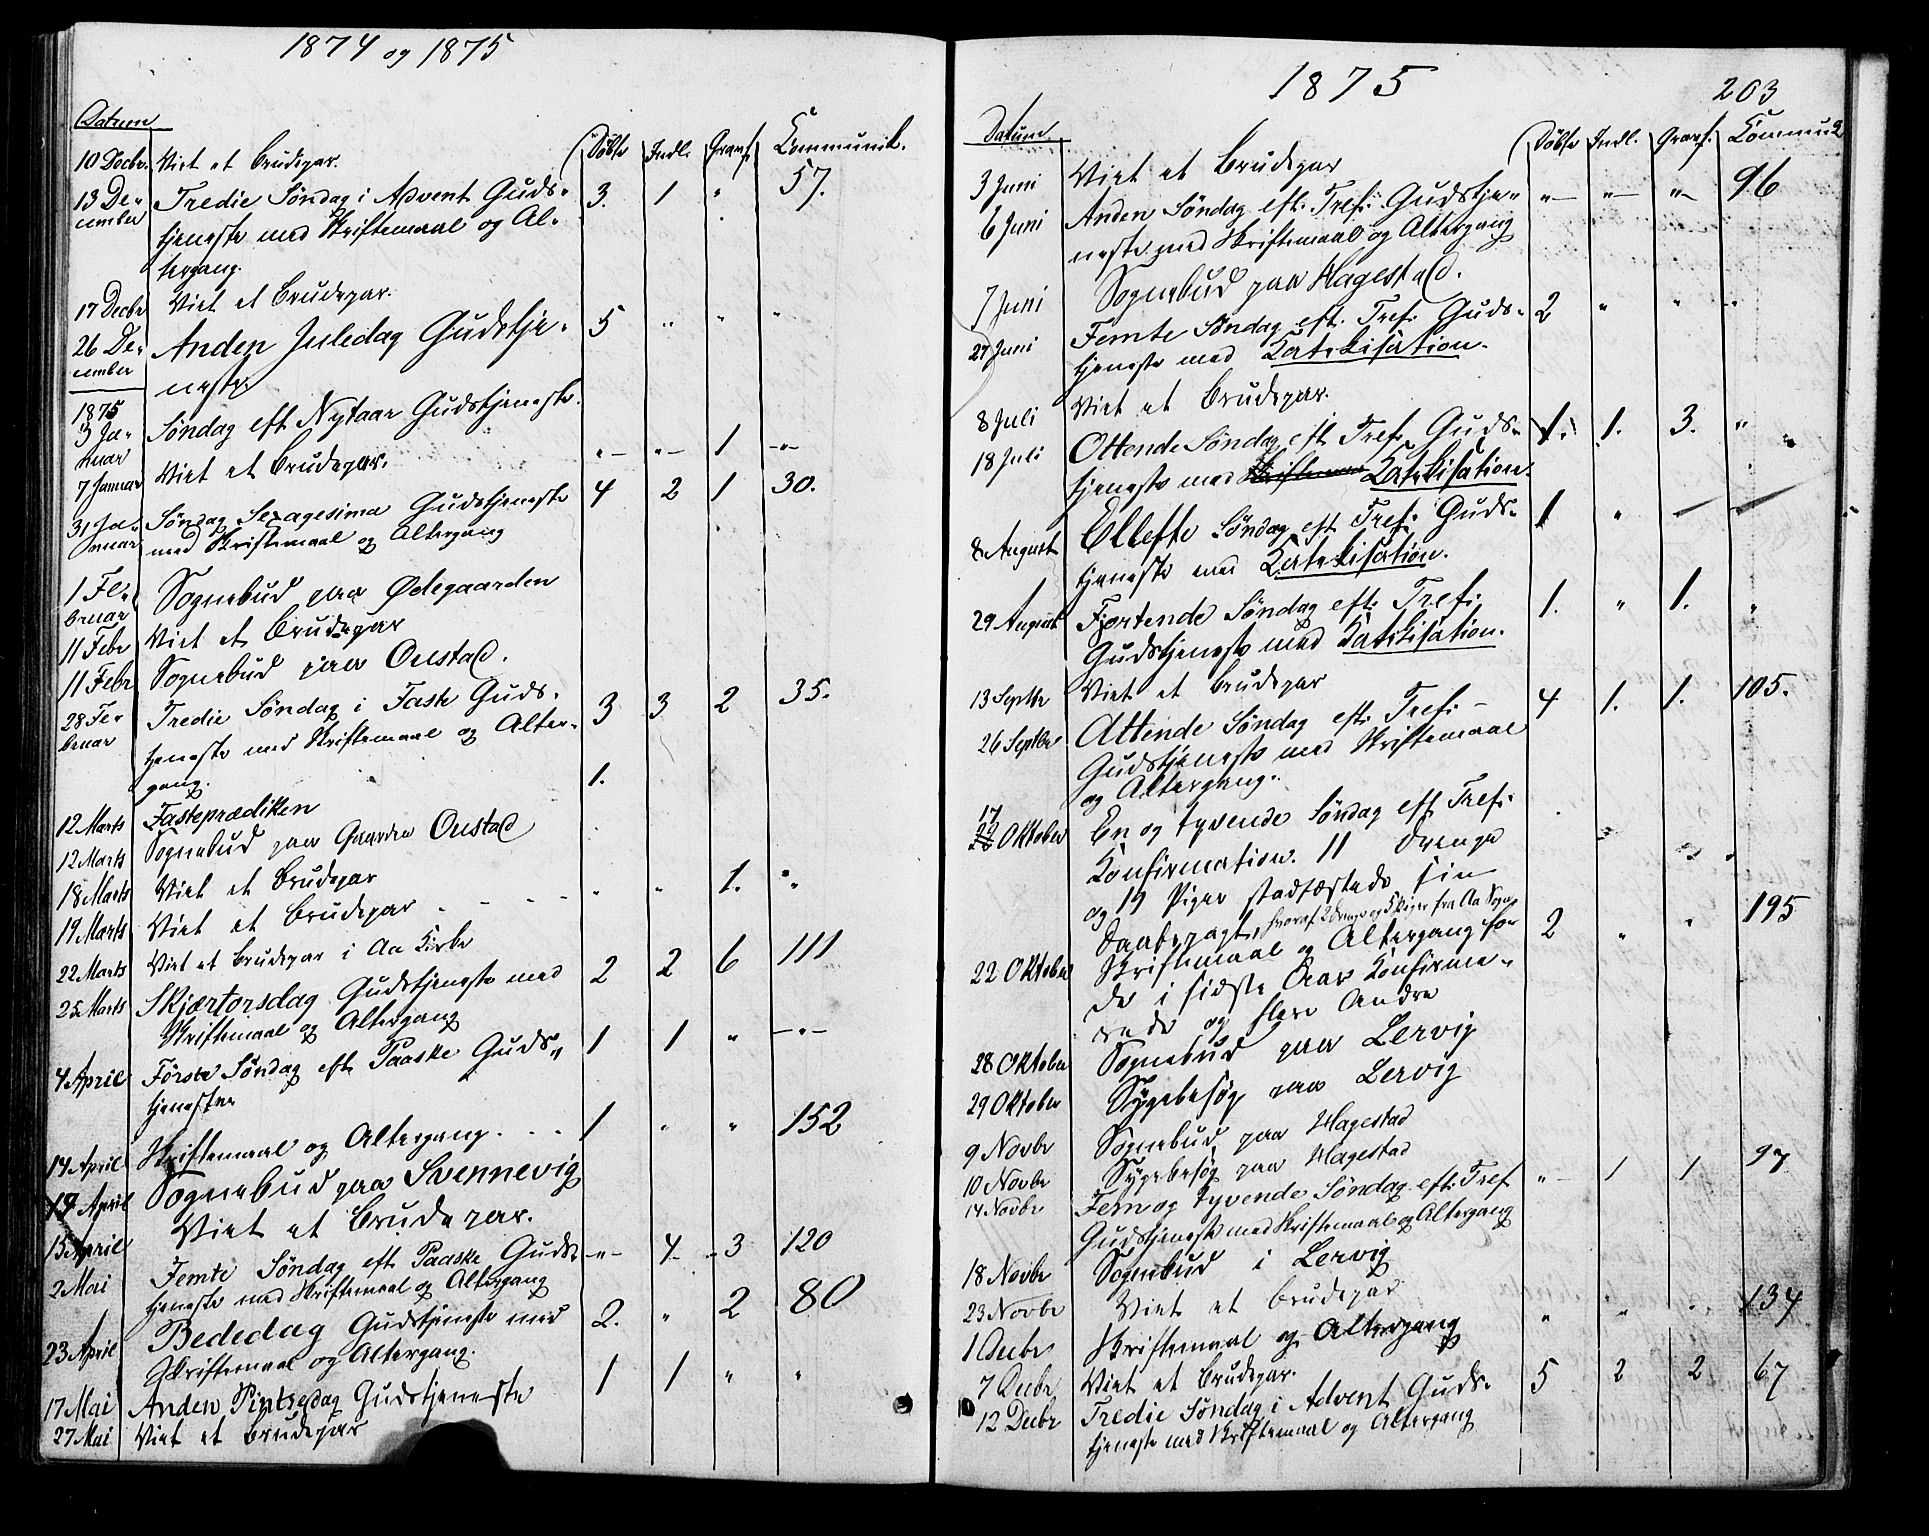 1874 og 1875
Datum Døbte Indl. Graaf. Communik.
10 Decbr. Viet et Brudepar.
13 De- Tredie Søndag i Advent Guds- 3. 1 " 57.
cember tjeneste med Skriftemaal og Al-
tergang.
17 Decbr Viet et Brudepar.
26 De- Anden Juledag Gudstje- 5 " " "
cember neste.
1875
3 Ja- Søndag eft Nytaar Gudstjeneste. " " 1 "
nuar
7 Januar Viet et Brudepar.
31 Ja- Søndag Sexagesima Gudstjeneste 4 2 1 30.
nuar med Skriftemaal og Altergang
1 Fe- Sognebud paa Ødegaarden
bruar
11 Febr Viet et Brudepar
11 Febr Sognebud paa Onstad.
28 Fe- Tredie Søndag i Faste Guds- 3 3 2 35.
bruar tjeneste med Skriftemaal og Alter-
gang. 1.
12 Marts Fasteprædiken
12 Marts Sognebud paa Gaarden Onstad
18 Marts Viet et Brudepar " " 1. "
19 Marts Viet et Brudepar
22 Marts Viet et Brudepar i Aa Kirke
25 Marts Skjærtorsdag Gudstjeneste med 2 2 6 111
Skriftemaal og Altergang
4 April Første Søndag eft Paaske Guds- 1 1 " "
tjeneste
14 April Skriftemaal og Altergang. 1 " " 152
19 April Sognebud paa Svennevig
15 April Viet et Brudepar.
2 Mai Femte Søndag eft Paaske Guds- " 4 3 120
tjeneste med Skriftemaal og Altergang
23 April Bededag Gudstjeneste med 2. " 2 80
Skriftemaal og Altergang.
17 Mai Anden Pintsedag Gudstjeneste 1 1 " "
27 Mai Viet et Brudepar
1875 203
Datum Døbte Indl. Graaf. Commu
3 Juni Viet et Brudepar
6 Juni Anden Søndag eft. Tref. Gudstje- " " " 96
neste med Skriftemaal og Altergang
7 Juni Sognebud paa Hagestad.
27 Juni Femte Søndag eft. Tref. Guds- 2 " " "
tjeneste med Katekisation.
8 Juli Viet et Brudepar.
18 Juli Ottende Søndag eft. Tref. Guds- 1. 1. 3. "
tjeneste med Skriftemaal Katekisation.
8 August Ellefte Søndag eft. Tref. Guds- 1 " — —
tjeneste med Katekisation.
29 August Fjortende Søndag eft. Tref. 1. " 1. "
Gudstjeneste med Katekisation.
13 Septbr Viet et Brudepar
26 Septbr Attende Søndag eft. Tref. 4 1. 1. 105.
Gudstjeneste med Skriftemaal
og Altergang.
17
Oktober En og tyvende Søndag eft Tref.
Konfirmation. 11 Drenge
og 19 Piger stadfæstede sin
Daabspagt, hvoraf 2 Drenge og 5 Piger fra Aa Sogn
22 Oktober Skriftemaal og Altergang for 2 " " 195
de i sidste Aar Konfirme-
rede og flere Andre
28 Oktober Sognebud paa Lervig
29 Oktober Sygebesøg paa Lervig
9 Novbr Sognebud paa Hagestad
10 Novbr Sygebesøg paa Hagestad
14 Novbr Fem og tyvende Søndag eft. Tref " 1 1 97
Gudstjeneste med Skriftemaal og Altergang
18 Novbr Sognebud i Lervig
23 Novbr Viet et Brudepar
1 Decbr Skriftemaal og Altergang " " " 134
7 Decbr Viet et Brudepar.
12 Decbr Tredie Søndag i Advent Guds- 5 2 2 67
tjeneste med Skriftemaal og Altergang